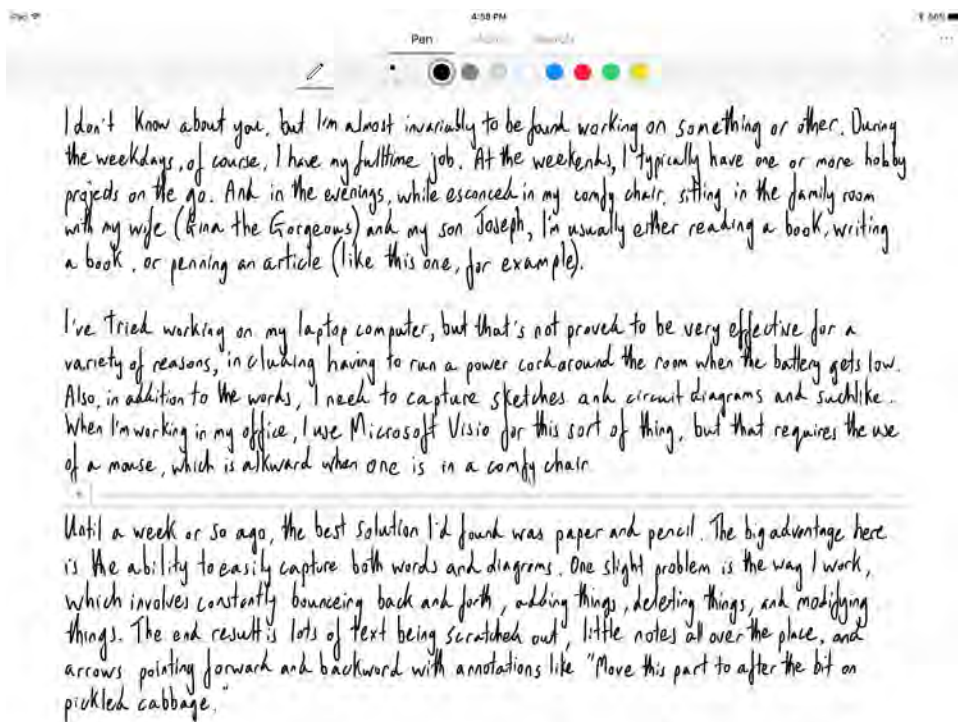 iPad
4:50 PM
Pen
I don't know about you, but I'm almost invariably to be found working on something or other. During
the weekdays, of course, I have my fulltime job. At the weekends, I typically have one or more hobby
projects on the go. And in the evenings, while esconced in my comfy chair, sitting in the family room
with my wife (Gina the Gorgeous) and my son Joseph, I'm usually either reading a book, writing
a book, or penning an article (like this one, for example).
I've tried working on my laptop computer, but that's not proved to be very effective for a
variety of reasons, including having to run a power cord around the room when the battery gets low.
Also, in addition to the words, I need to capture sketches and circuit diagrams and suchlike.
When I'm working in my office, I use Microsoft Visio for this sort of thing, but that requires the use
of a mouse, which is alkward when one is in a comfy chair.
Until a week or so ago, the best solution I'd found was paper and pencil. The big advantage here
is the ability to easily capture both words and diagrams. One slight problem is the way I work,
which involves constantly bounceing back and forth, adding things, deleting things, and modifying
things. The end result is lots of text being scratched out, little notes all over the place, and
arrows pointing forward and backword with annotations like "Move this part to after the bit on
pickled cabbage."